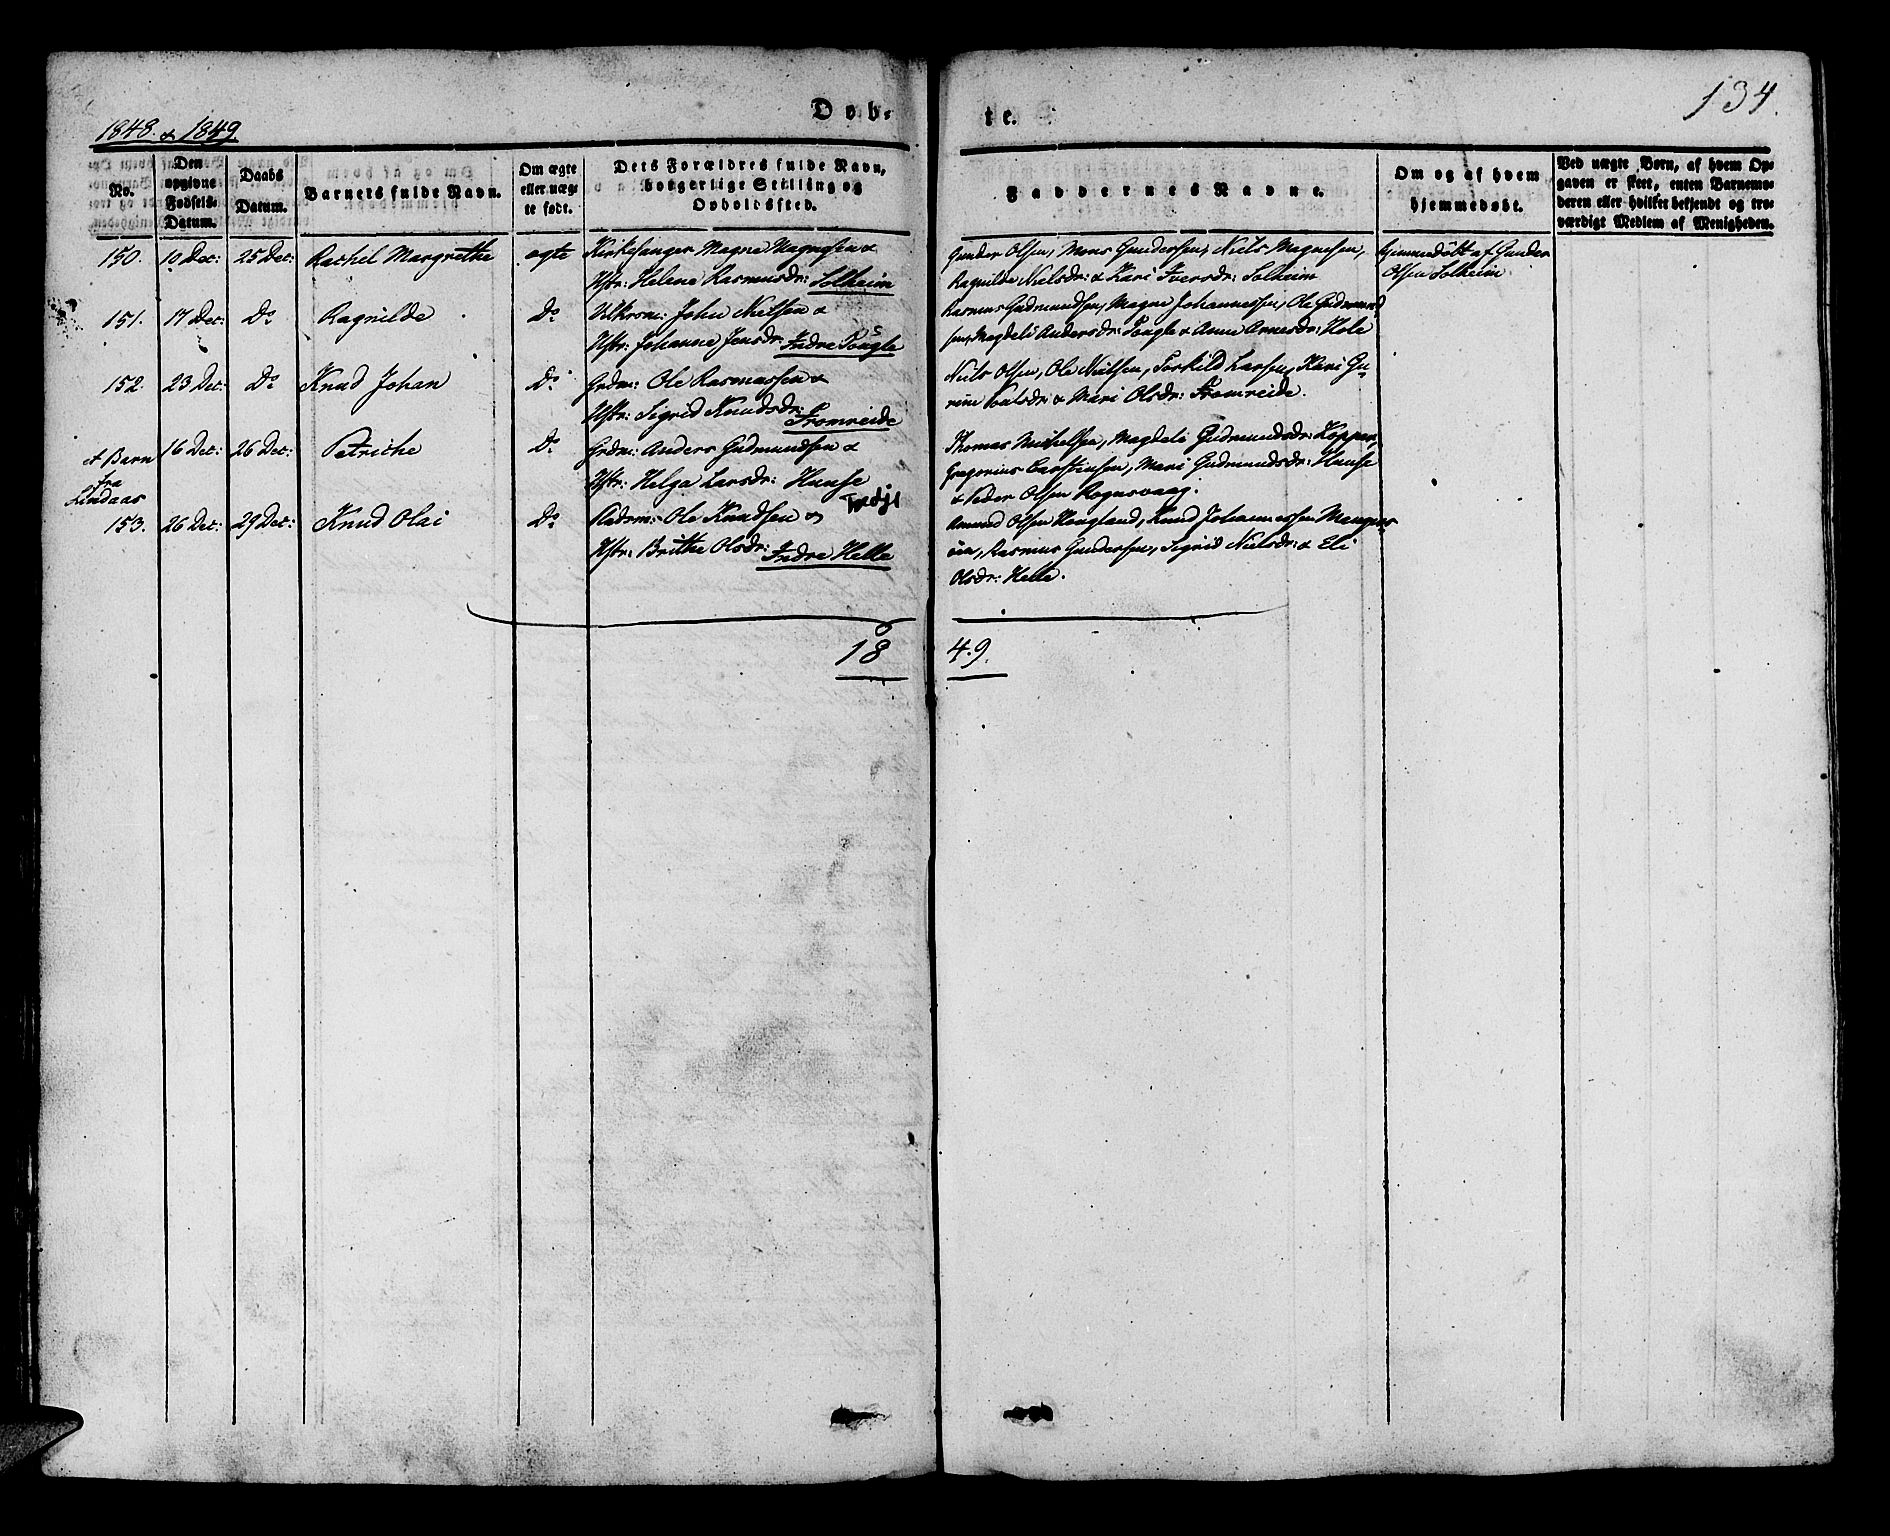 134.
1848. & 1849
Døb-
te.
No.
Den opgivne Fødsels-Datum.
Daabs Datum.
Barnets fulde Navn.
Om ægte eller uæg-te født.
Dets Forældres fulde Navn, borgerlige Stilling og Opholdssted.
Faddernes Navne.
Om og af hvem hjemmedøbt.
Ved uægte Børn, af hvem Op-
gaven er skeet, enten Barnemo-
deren eller hvilket bekjendt og tro-
værdigt Medlem af Menigheden.
150. 10 Dec: 25 Dec: Rachel Margrethe ægte Kirkesanger Magne Magnesen &
Hstr: Helene Rasmusdr: Solheim
Gunder Olsen, Mons Gundersen, Niels Magnesen,
Ragnilde Nielsdr: & Kari Iversdr: Solheim
hjemmedöbt af Gunder
Olsen Solheim
151. 17 Dec: Do Ragnilde Do John Nielsen &
Hstr: Johanne Jensdr: Indre
Rasmus Gudmundsen, Magne Johannessen, Ole Gudmund
sen, Magdeli Andersdr: & Anne Arnesdr: Hole
152. 23 Dec: Do Knud Johan Do Grdm: Ole Rasmussen &
Hstr: Sigrid Knudsdr: Fromreide
Niels Olsen, Ole Nielsen, Torkild Larsen, Kari Gu-
& Mari Olsdr: Fromreide.
et Barn fra Lindaas
16 Dec: 26 Dec: Petriche Do Grdm: Anders Gudmundsen &
Hstr: Helga Larsdr: Hunse
Thomas Mikkelsen, Magdeli Gudmundsdr: Koppen,
Gregorius Carstensen, Mari Gudmundsdr: Hunse
& Peder Olsen Rognevaag.
153. 26 Dec: 29 Dec: Knud Olai Do Ole Knudsen &
Hstr: Brithe Olsdr: Indre Helle
Amund Olsen Hougland, Knud Johannessen
Rasmus Gundersen, Sigrid Nielsdr: & Eli
Olsdr: Helle.
18 49.